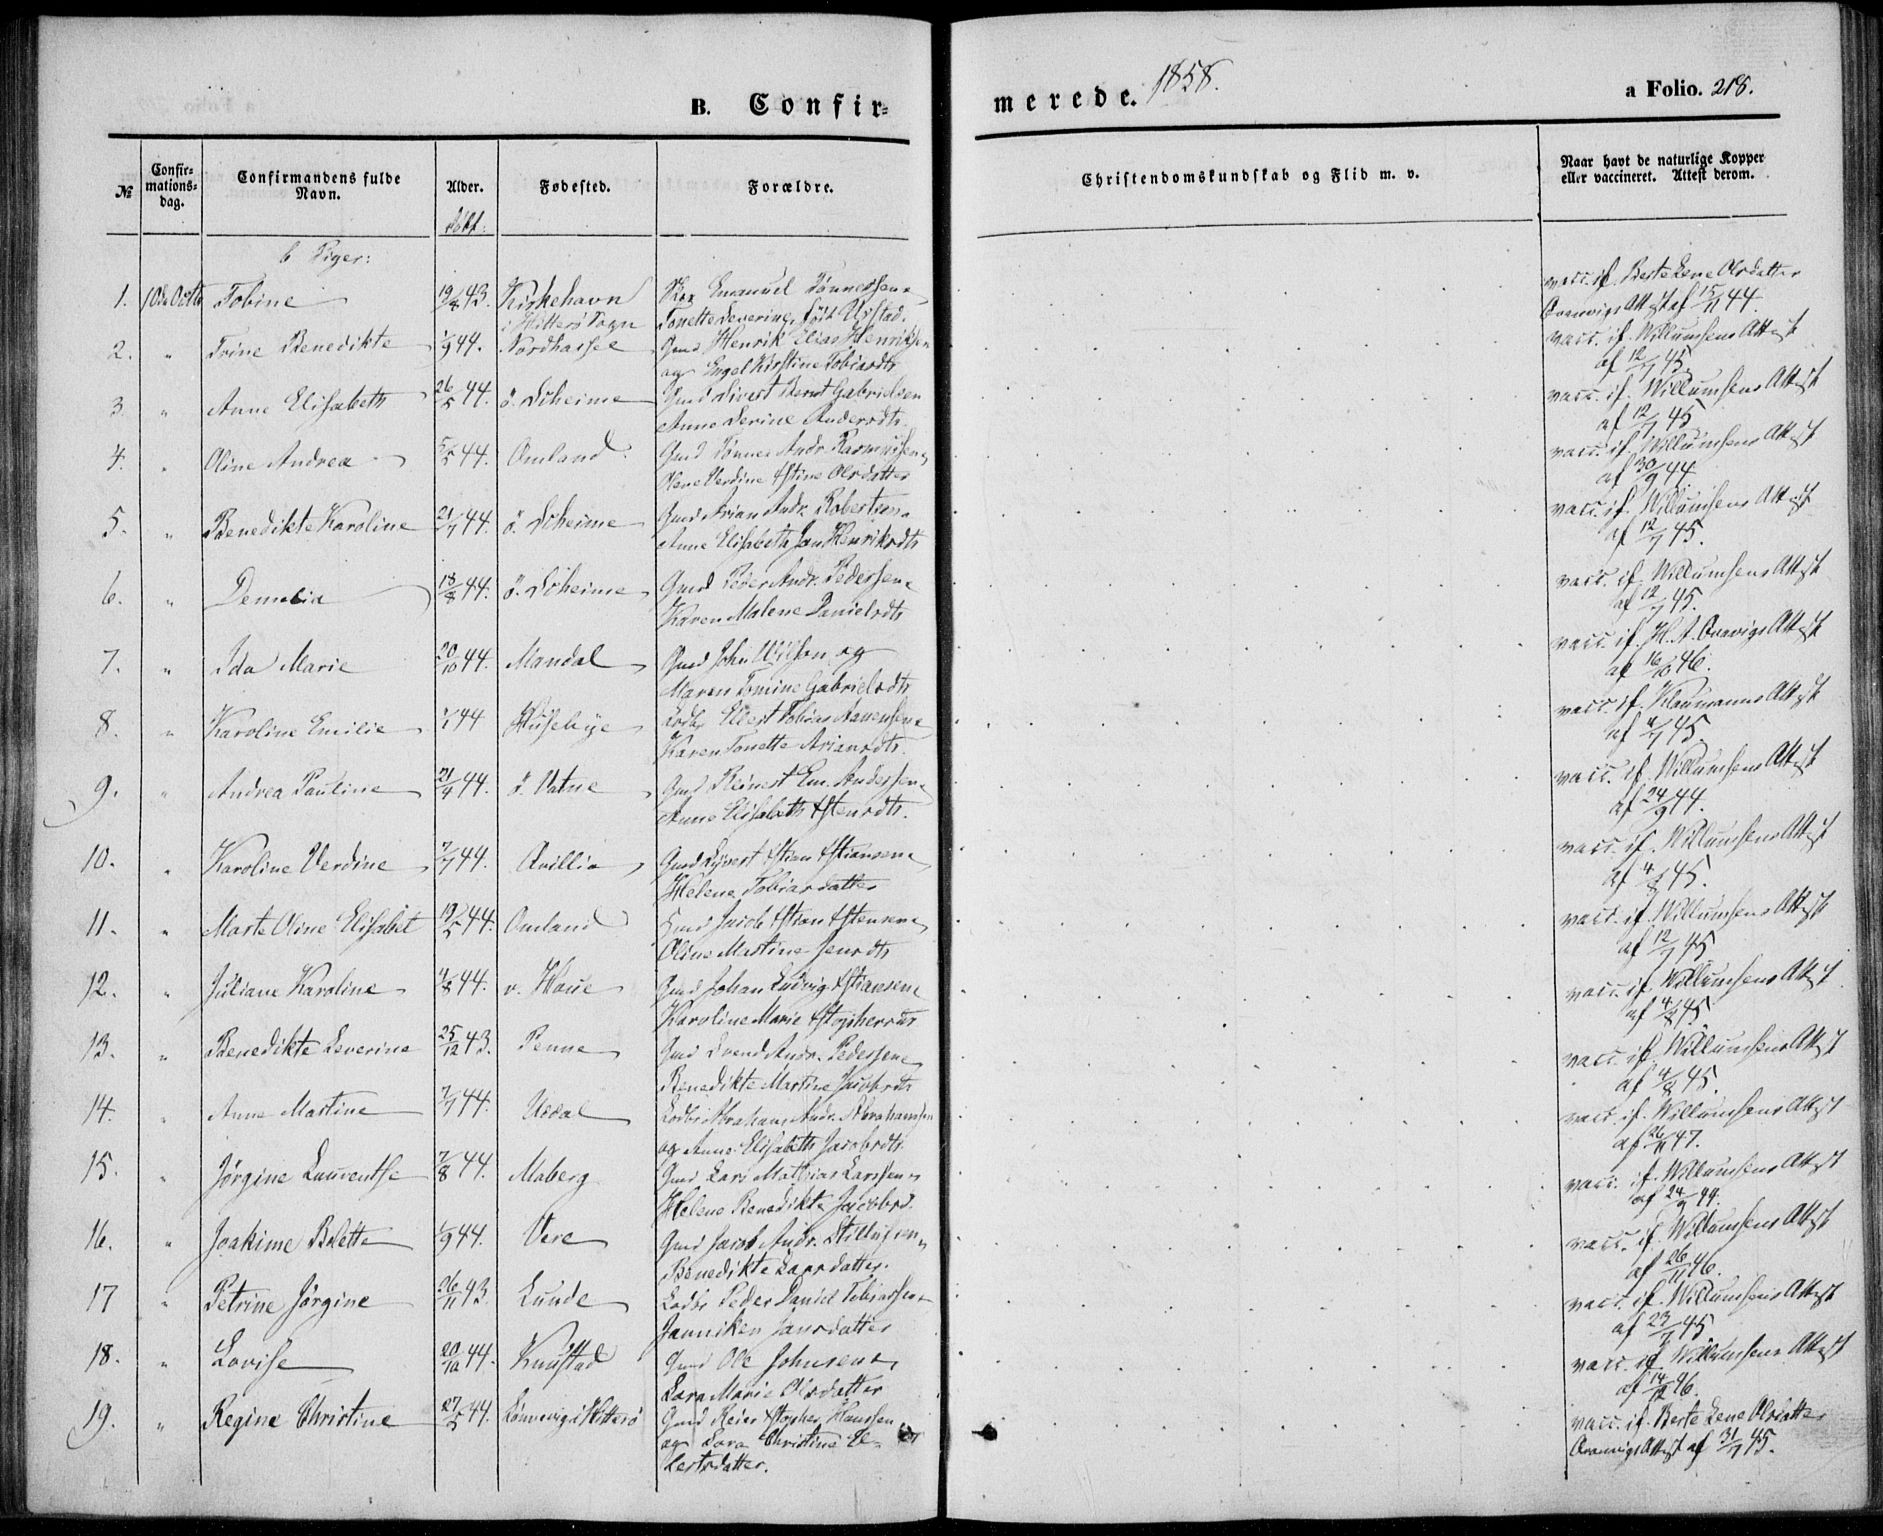 B. Confir=
merede. 1858.
a Folio. 218.
No
Confir=
mations=
dag.
Confirmandens fulde
Navn.
Alder.
Fødested.
Forældre.
Christendomskundskab og Flid m. v.
Naar havt de naturlige Kopper
eller vaccineret. Attest derom.
b Piger:
1. 10de Octb Tobine 19/8 43. Kirkehavn
i Hitterø Sogn
Emanuel Tønnessen
Tonette Severine, født Ustad.
vacc. if. Berte Lene Olsdatter
Attest af 15/11 44.
2. " Trine Benedikte 1/9 44. Nordhassel Gmd Henrik Elias Henriksen
og Engel Kirstine Tobiasdtr
vacc. if. Willumsens Attest
af 12/7 45.
3. " Anne Elisabeth 26/5 44. ø. Skeime Gmd Sivert Bernt Gabrielsen
Anne Serine Andersdtr.
vacc. if. Willumsens Attest
af 12/7 45
4. " Oline Andrea 5/5 44. Omland Gmd Tønnes Andr. Rasmussen
Olene Verdine Stine Olsdatter
vacc. if. Willumsens Attest
af 30/9 44.
5. " Benedikte Karoline 21/7 44. ø. Skeime Gmd Arian Andr. Robertsen
Anne Elisabeth Jan Henriksdtr
vacc. if. Willumsens Attest
af 12/7 45.
6. " 18/8 44. ø. Skeime Gmd Peder Andr. Pedersen
Karen Malene Danielsdtr
vacc. if. Willumsens Attest
af 12/7 45.
7. " Ida Marie 20/10 44. Mandal Gmd John Wilson og
Maren Tomine Gabrielsdtr
vacc. if. H. A. Attest
af 16/10 46.
8. " Karoline Emilie 44 Husebye Lods Eilert Tobias Aanensen
Karen Tonette Ariansdtr.
vacc. if. Klaumanns Attest
af 4/7 45.
9. " Andrea Pauline 21/4 44. ø. Vatne Gmd Reinert Em. Andersen
Anne Elisabeth Stensdtr.
vacc. if. Willumsens Attest
af 24/9 44.
10. " Karoline Verdine 7/7 44. Qvillia Gmd Syvert Stian Stiansen
Helene Tobiasdatter
vacc. if. Willumsens Attest
af 4/8 45.
11. " Marte Oline Elisabet 19/5 44. Omland Gmd Jacob Stian Stensen
Oline Martine Jensdtr
vacc. if. Willumsens Attest
af 12/7 45
12. " Juliane Karoline 4/8 44. v. Haue Gmd Johan Ludvig Stiansen
Karoline Marie
vacc. if. Willumsens Attest
af 4/8 45
13. " Benedikte Severine 25/12 43. Penne Gmd Svend Andr. Pedersen
Benedikte Martine Jacobsdtr
vacc. if. Willumsens Attest
af 4/8 45.
14. " Anne Martine 7/7 44. Usdal Lodbr Abraham Andr. Abrahamsen
og Anne Elisabeth Jacobsdtr
vacc. if. Willumsens Attest
af 26/11 47.
15. " Jørgine Laurentse 7/8 44. Maberg Gmd Lars Mathias Larssen
Helene Benedikte Jacobsd.
vacc. if. Willumsens Attest
af 24/9 44.
16. " Joakime Bolette 1/9 44. Vere Gmd Jacob Andr. Stillufsen
Benedikte Larsdatter.
vacc. if. Willumsens Attest
af 26/11 46.
17 " Petrine Jørgine 26/11 43. Lunde Lodbr Peder Daniel Tobiassen
Janniken Jansdatter
vacc. if. Willumsens Attest
af 23/7 45
18. " Lovise 20/10 44. Knustad Gmd Ole Johnsen
Sara Marie Olsdatter
vacc. if Willumsens Attest
af 14/12 46.
19. " Regine Christine 27/5 44. i Hitterø Gmd Reier Hanssen
og Sara Christine
vacc. if. Berte Lene Olsdatter
Attest af 31/7 45.